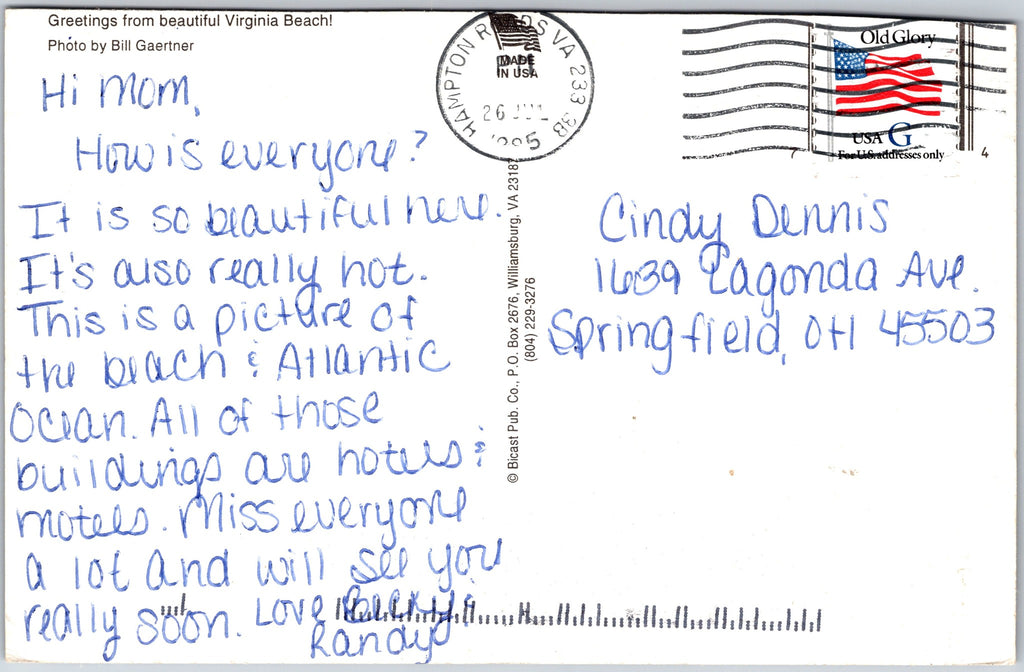 Greetings from beautiful Virginia Beach!
Photo by Bill Gaertner
Hi Mom,
How is everyone?
It is so beautiful here.
It's also really hot.
This is a picture of
the beach & Atlantic
Ocean. All of those
buildings are hotels &
motels. Miss everyone
a lot and will see you
really soon. Love Becky &
Randy
HAMPTON ROADS VA 233 3B
MADE
IN USA
26 JUL
1995
Old Glory
USA G
For U.S. addresses only
7 4
© Bicast Pub. Co., P.O. Box 2676, Williamsburg, VA 23187
(804) 229-3276
Cindy Dennis
1639 Lagonda Ave.
Springfield, OH 45503